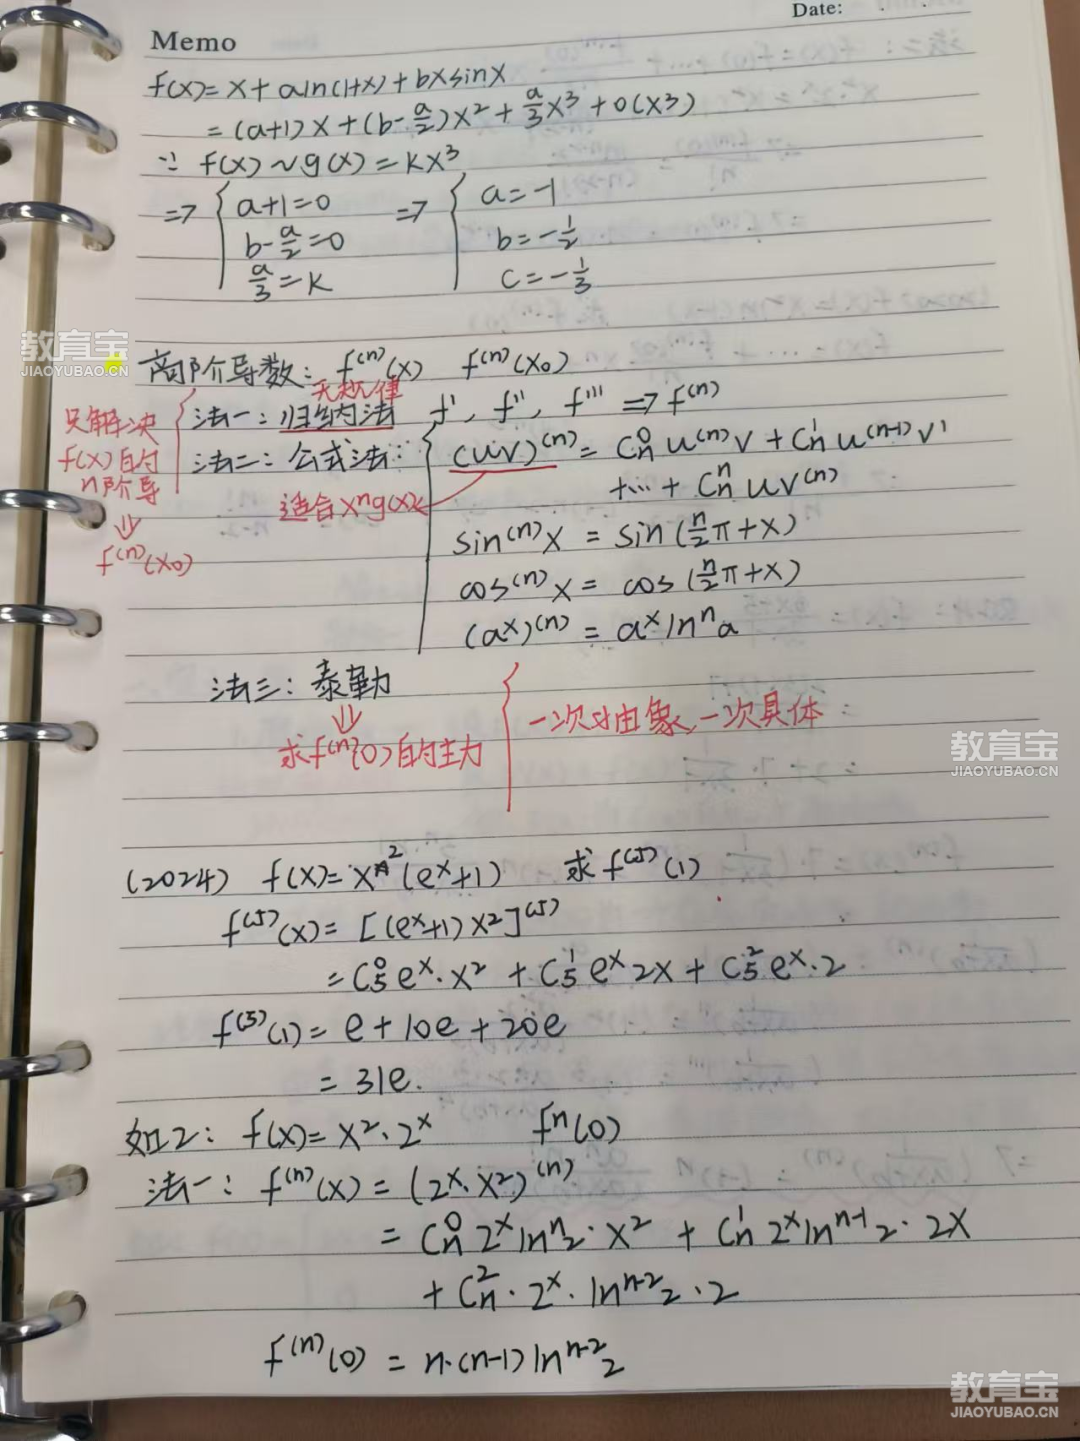 Date:
Memo
f(x)=x+aln(1+x)+bxsinx
=(a+1)x+(b-a/2)x²+a/3x³+o(x³)
∵ f(x)~g(x)=kx³
⇒ { a+1=0 ⇒ { a=-1
b-a/2=0 b=-1/2
a/3=k c=-1/3
教育宝
JIAOYUBAO.CN
高阶导数: f⁽ⁿ⁾(x) f⁽ⁿ⁾(x₀)
无规律
法一: 归纳法 f', f'', f''' ⇒ f⁽ⁿ⁾
法二: 公式法: { (u·v)⁽ⁿ⁾ = Cₙ⁰u⁽ⁿ⁾v + Cₙ¹u⁽ⁿ⁻¹⁾v'
+…+ Cₙⁿuv⁽ⁿ⁾
只解决
f(x)的
n阶导
⇓
f⁽ⁿ⁾(x₀)
适合xⁿg(x)
sin⁽ⁿ⁾x = sin(n/2π+x)
cos⁽ⁿ⁾x = cos(n/2π+x)
(aˣ)⁽ⁿ⁾ = aˣlnⁿa
法三: 泰勒
⇓
求f⁽ⁿ⁾(0)的主力
一次抽象,一次具体
教育宝
JIAOYUBAO.CN
(2024) f(x)=x²(eˣ+1) 求f⁽⁵⁾(1)
f⁽⁵⁾(x)=[(eˣ+1)x²]⁽⁵⁾
=C₅⁰eˣ·x²+C₅¹eˣ2x+C₅²eˣ·2
f⁽⁵⁾(1)=e+10e+20e
=31e.
如2: f(x)=x²·2ˣ fⁿ(0)
法一: f⁽ⁿ⁾(x)=(2ˣ·x²)⁽ⁿ⁾
=Cₙ⁰2ˣlnⁿ2·x²+Cₙ¹2ˣlnⁿ⁻¹2·2x
+Cₙ²·2ˣ·lnⁿ⁻²2·2
f⁽ⁿ⁾(0)=n·(n-1)lnⁿ⁻²2
教育宝
JIAOYUBAO.CN